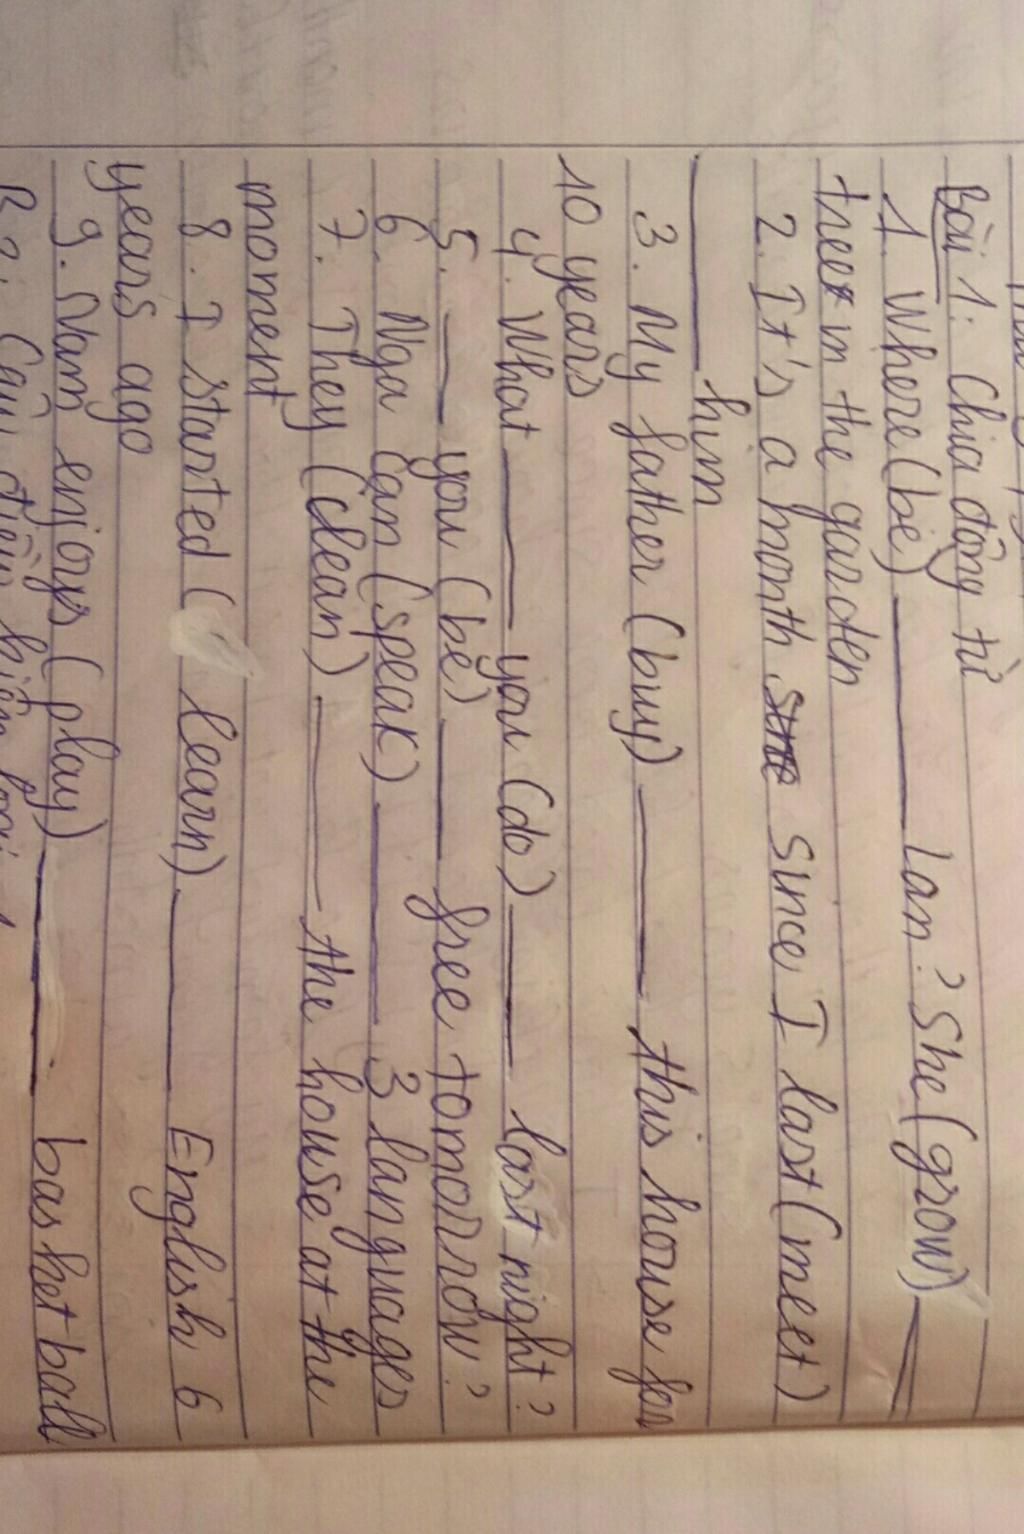 Bài 1: Chia động từ
1. Where (be) ______ Lan? She (grow) ____
trees in the garden
2. It's a month since I last (meet)
______ him
3. My father (buy) ______ this house for
10 years
4. What ______ you (do) ______ last night?
5. ____ you (be) ____ free tomorrow?
6. Nga can (speak) ______ 3 languages
7. They (clean) ______ the house at the
moment
8. I started (learn) ______ English 6
years ago
9. Nam enjoys (play) ______ basketball